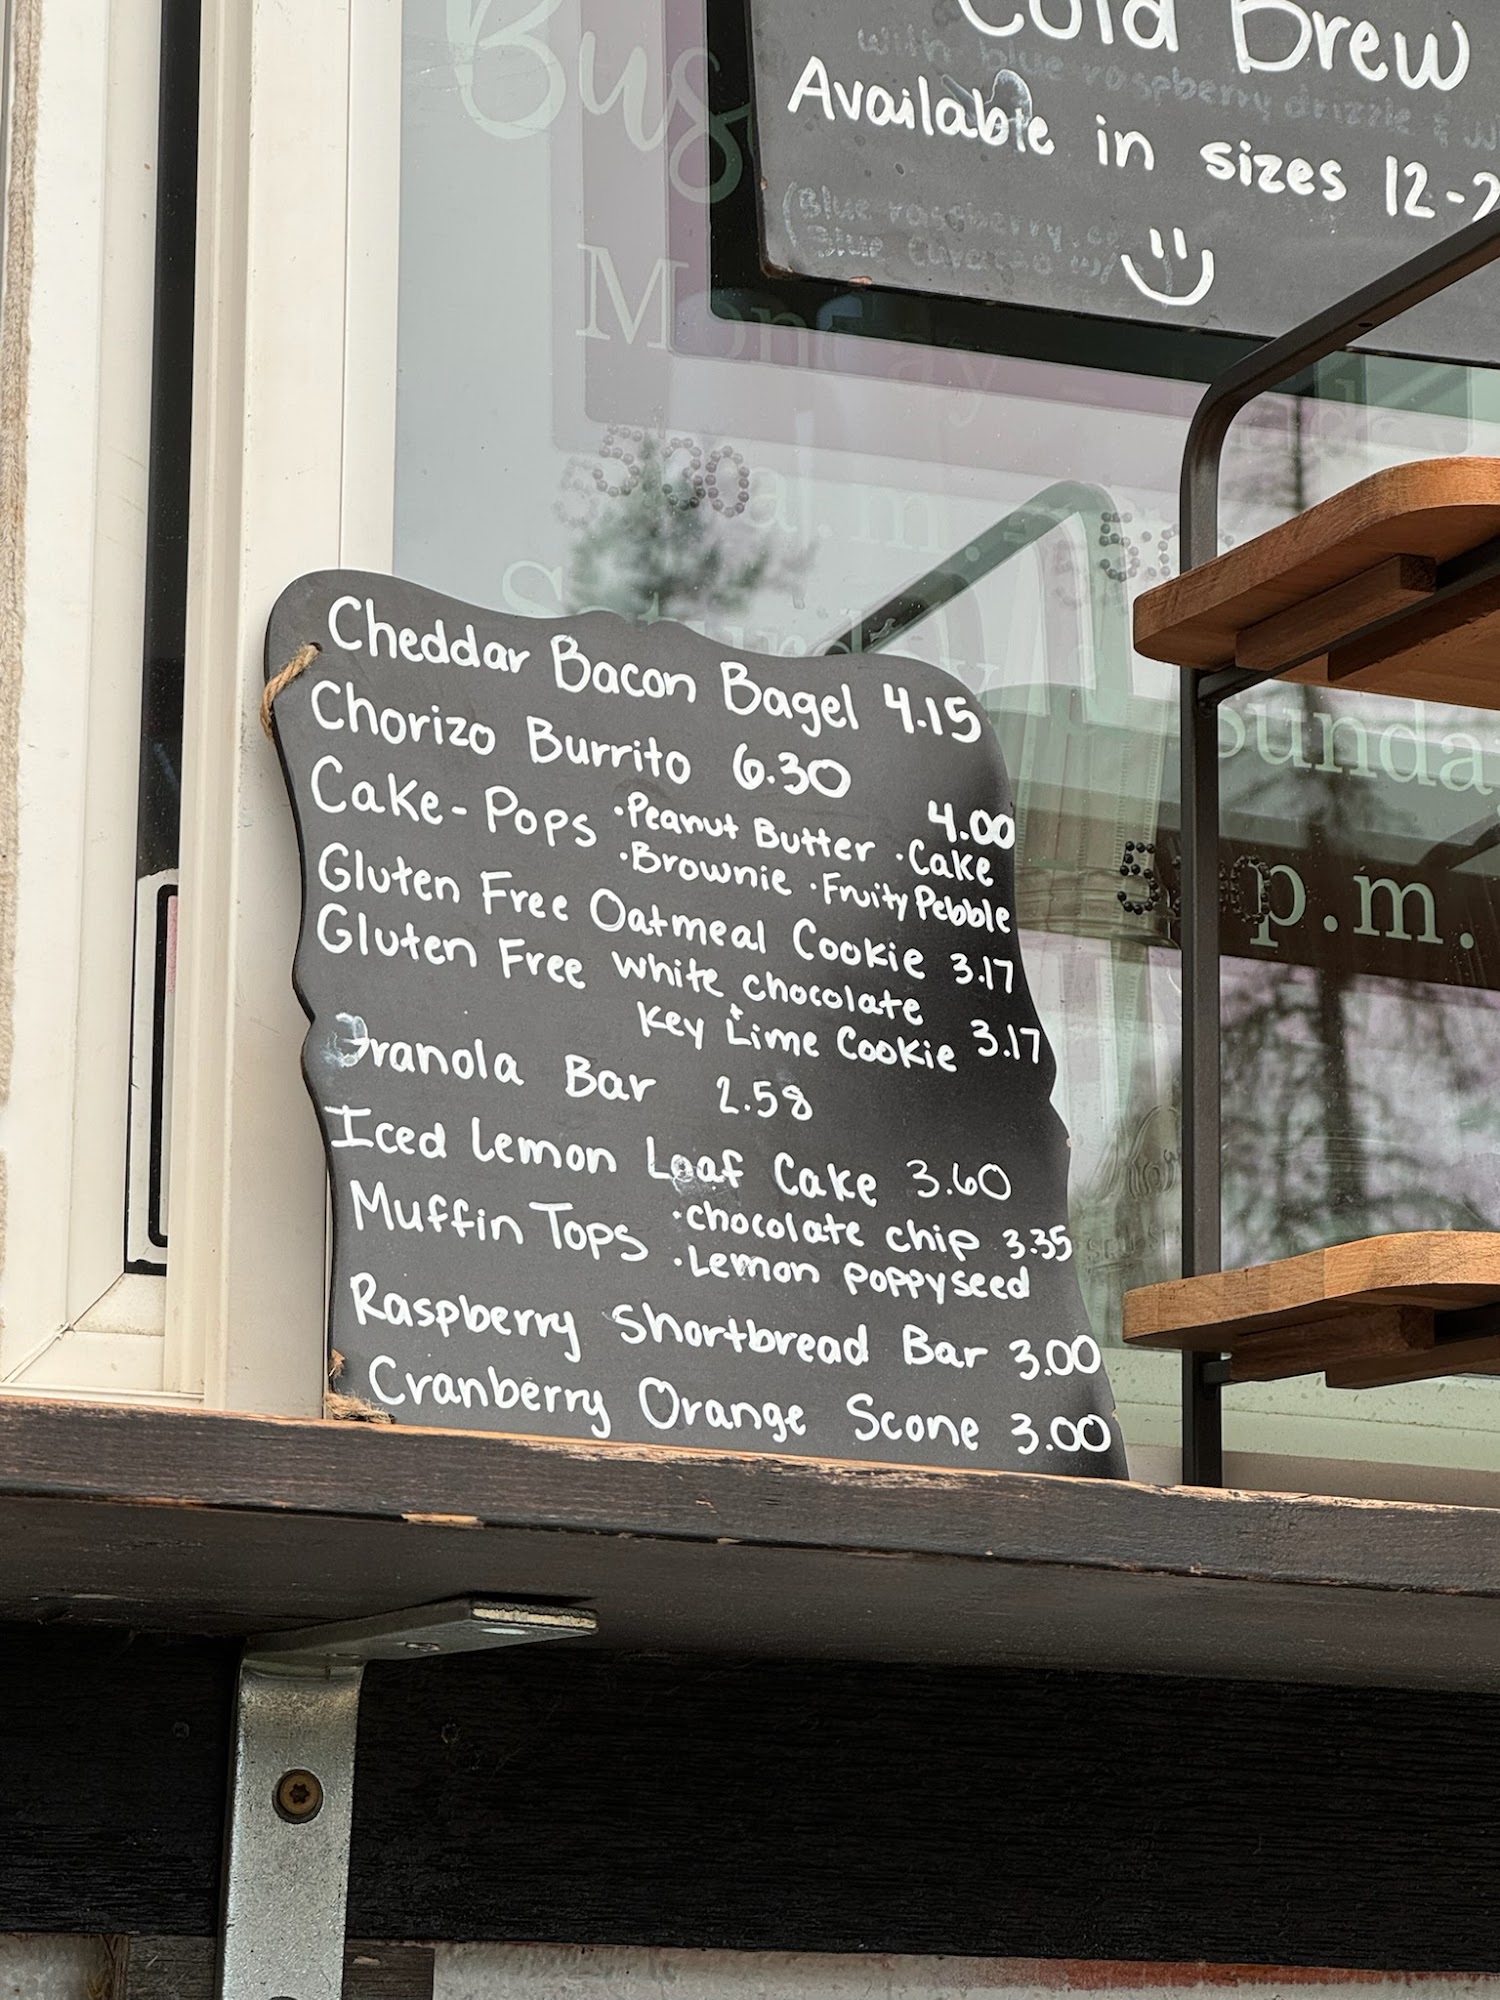 Cold Brew
with blue raspberry drizzle & w
Available in sizes 12-2
(Blue raspberry
Blue Curacao w/
Bus
Monday
5:00 a.m. - 5:0
Saturday
Sunda
5:00 p.m.
Cheddar Bacon Bagel 4.15
Chorizo Burrito 6.30
Cake-Pops ·Peanut Butter ·Cake 4.00
·Brownie ·Fruity Pebble
Gluten Free Oatmeal Cookie 3.17
Gluten Free White chocolate
+
Key Lime Cookie 3.17
Granola Bar 2.58
Iced Lemon Loaf Cake 3.60
Muffin Tops ·chocolate chip 3.35
·Lemon poppyseed
Raspberry Shortbread Bar 3.00
Cranberry Orange Scone 3.00